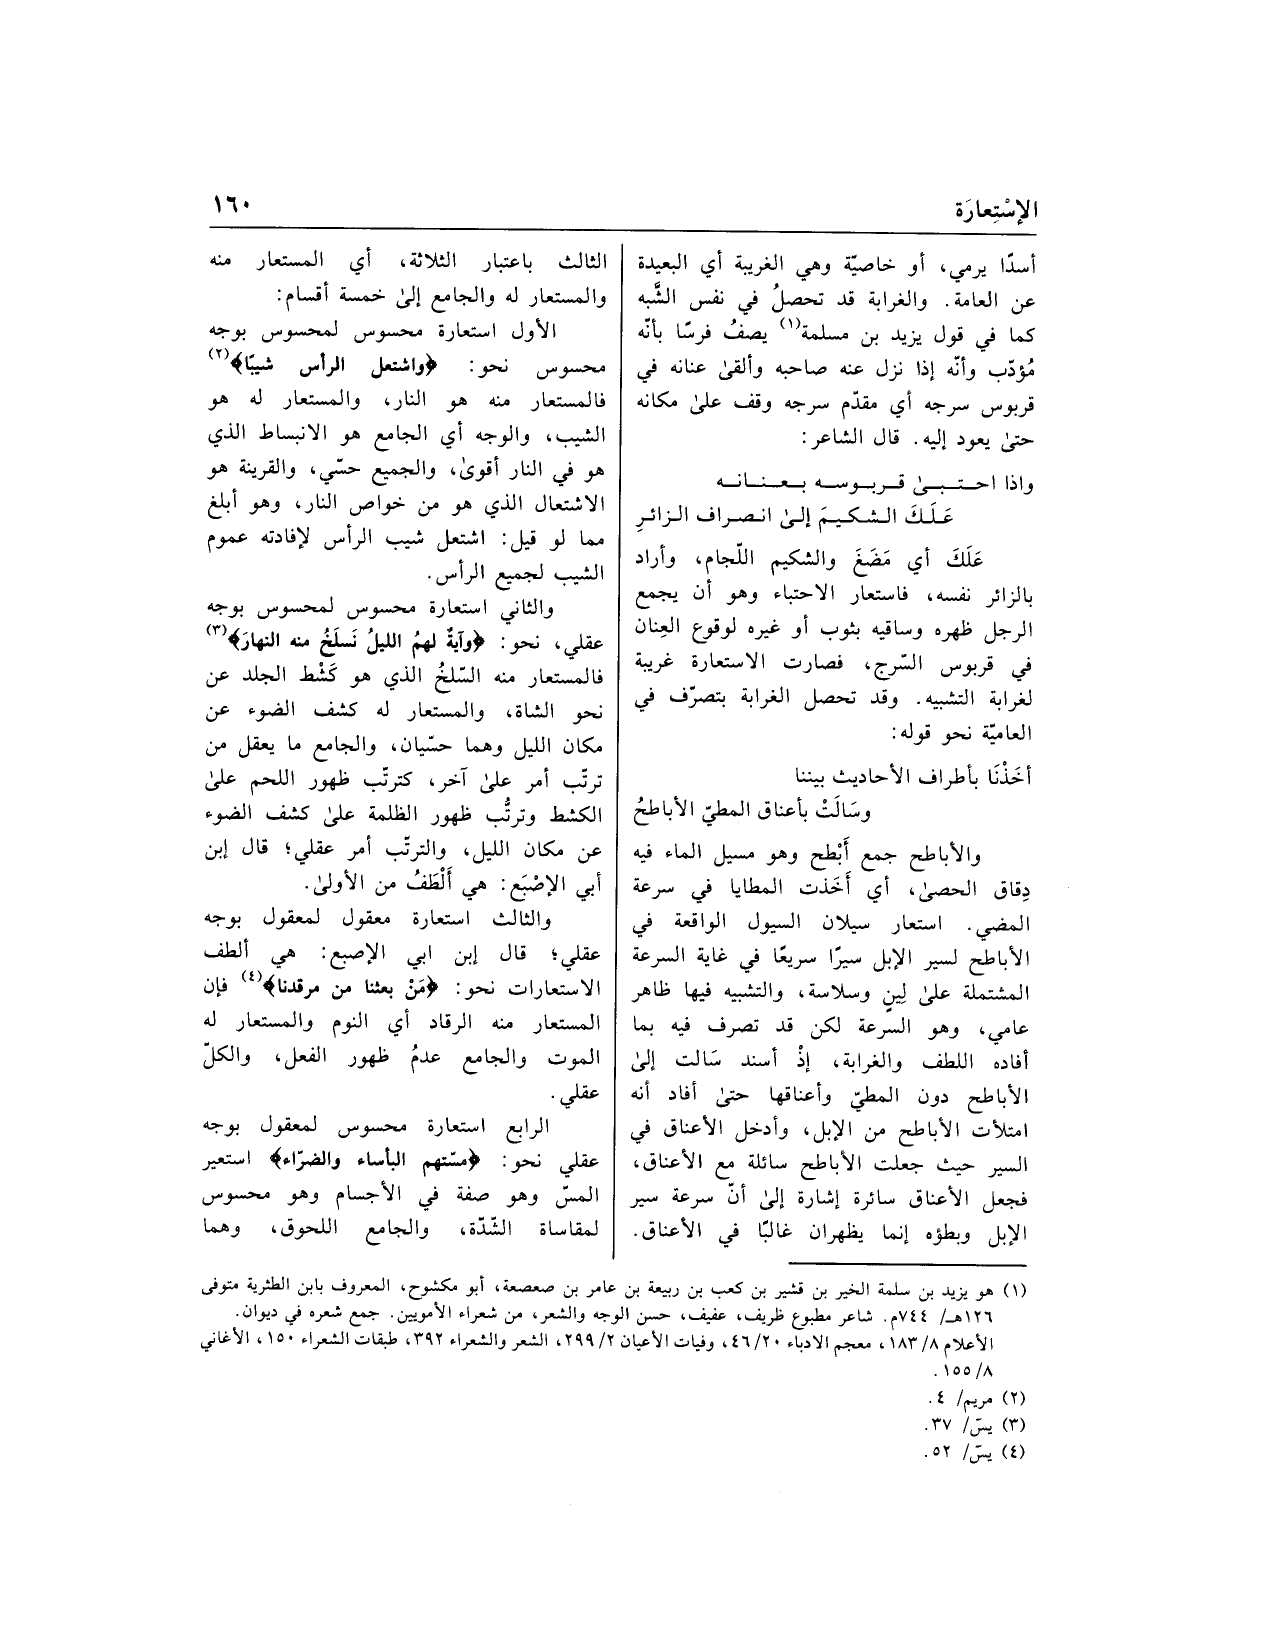 الإسْتِعارَة
١٦٠
أسدًا يرمي، أو خاصيّة وهي الغريبة أي البعيدة
عن العامة. والغرابة قد تحصلُ في نفس الشَّبه
كما في قول يزيد بن مسلمة(١) يصفُ فرسًا بأنّه
مُؤدّب وأنّه إذا نزل عنه صاحبه وألقىٰ عنانه في
قربوس سرجه أي مقدّم سرجه وقف علىٰ مكانه
حتىٰ يعود إليه. قال الشاعر:
واذا احـتـبـىٰ قـربـوسـه بـعـنـانـه
عَـلَـكَ الـشـكـيـمَ إلىٰ انـصـراف الـزائـرِ
عَلَكَ أي مَضَغَ والشكيم اللّجام، وأراد
بالزائر نفسه، فاستعار الاحتباء وهو أن يجمع
الرجل ظهره وساقيه بثوب أو غيره لوقوع العِنان
في قربوس السّرج، فصارت الاستعارة غريبة
لغرابة التشبيه. وقد تحصل الغرابة بتصرّف في
العاميّة نحو قوله:
أخَذْنَا بأطراف الأحاديث بيننا
وسَالَتْ بأعناق المطيّ الأباطحُ
والأباطح جمع أَبْطح وهو مسيل الماء فيه
دِقاق الحصىٰ، أي أَخَذت المطايا في سرعة
المضي. استعار سيلان السيول الواقعة في
الأباطح لسير الإبل سيرًا سريعًا في غاية السرعة
المشتملة علىٰ لِينٍ وسلاسة، والتشبيه فيها ظاهر
عامي، وهو السرعة لكن قد تصرف فيه بما
أفاده اللطف والغرابة، إذْ أسند سَالت إلىٰ
الأباطح دون المطيّ وأعناقها حتىٰ أفاد أنه
امتلأت الأباطح من الإبل، وأدخل الأعناق في
السير حيث جعلت الأباطح سائلة مع الأعناق،
فجعل الأعناق سائرة إشارة إلىٰ أنّ سرعة سير
الإبل وبطؤه إنما يظهران غالبًا في الأعناق.
الثالث باعتبار الثلاثة، أي المستعار منه
والمستعار له والجامع إلىٰ خمسة أقسام:
الأول استعارة محسوس لمحسوس بوجه
محسوس نحو: ﴿واشتعل الرأس شيبًا﴾(٢)
فالمستعار منه هو النار، والمستعار له هو
الشيب، والوجه أي الجامع هو الانبساط الذي
هو في النار أقوىٰ، والجميع حسّي، والقرينة هو
الاشتعال الذي هو من خواص النار، وهو أبلغ
مما لو قيل: اشتعل شيب الرأس لإفادته عموم
الشيب لجميع الرأس.
والثاني استعارة محسوس لمحسوس بوجه
عقلي، نحو: ﴿وآيةٌ لهمُ الليلُ نَسلَخُ منه النهارَ﴾(٣)
فالمستعار منه السّلخُ الذي هو كَشْط الجلد عن
نحو الشاة، والمستعار له كشف الضوء عن
مكان الليل وهما حسّيان، والجامع ما يعقل من
ترتّب أمر علىٰ آخر، كترتّب ظهور اللحم علىٰ
الكشط وترتُّب ظهور الظلمة علىٰ كشف الضوء
عن مكان الليل، والترتّب أمر عقلي؛ قال إبن
أبي الإصْبَع: هي أَلْطَفُ من الأولىٰ.
والثالث استعارة معقول لمعقول بوجه
عقلي؛ قال إبن ابي الإصبع: هي ألطف
الاستعارات نحو: ﴿مَنْ بعثنا من مرقدنا﴾(٤) فإن
المستعار منه الرقاد أي النوم والمستعار له
الموت والجامع عدمُ ظهور الفعل، والكلّ
عقلي.
الرابع استعارة محسوس لمعقول بوجه
عقلي نحو: ﴿مسّتهم البأساء والضرّاء﴾ استعير
المسّ وهو صفة في الأجسام وهو محسوس
لمقاساة الشّدّة، والجامع اللحوق، وهما
(١) هو يزيد بن سلمة الخير بن قشير بن كعب بن ربيعة بن عامر بن صعصعة، أبو مكشوح، المعروف بابن الطثرية متوفى
١٢٦هـ/ ٧٤٤م. شاعر مطبوع ظريف، عفيف، حسن الوجه والشعر، من شعراء الأمويين. جمع شعره في ديوان.
الأعلام ٨/ ١٨٣، معجم الادباء ٢٠/ ٤٦، وفيات الأعيان ٢/ ٢٩٩، الشعر والشعراء ٣٩٢، طبقات الشعراء ١٥٠، الأغاني
٨/ ١٥٥.
(٢) مريم/ ٤.
(٣) يسۤ/ ٣٧.
(٤) يسۤ/ ٥٢.